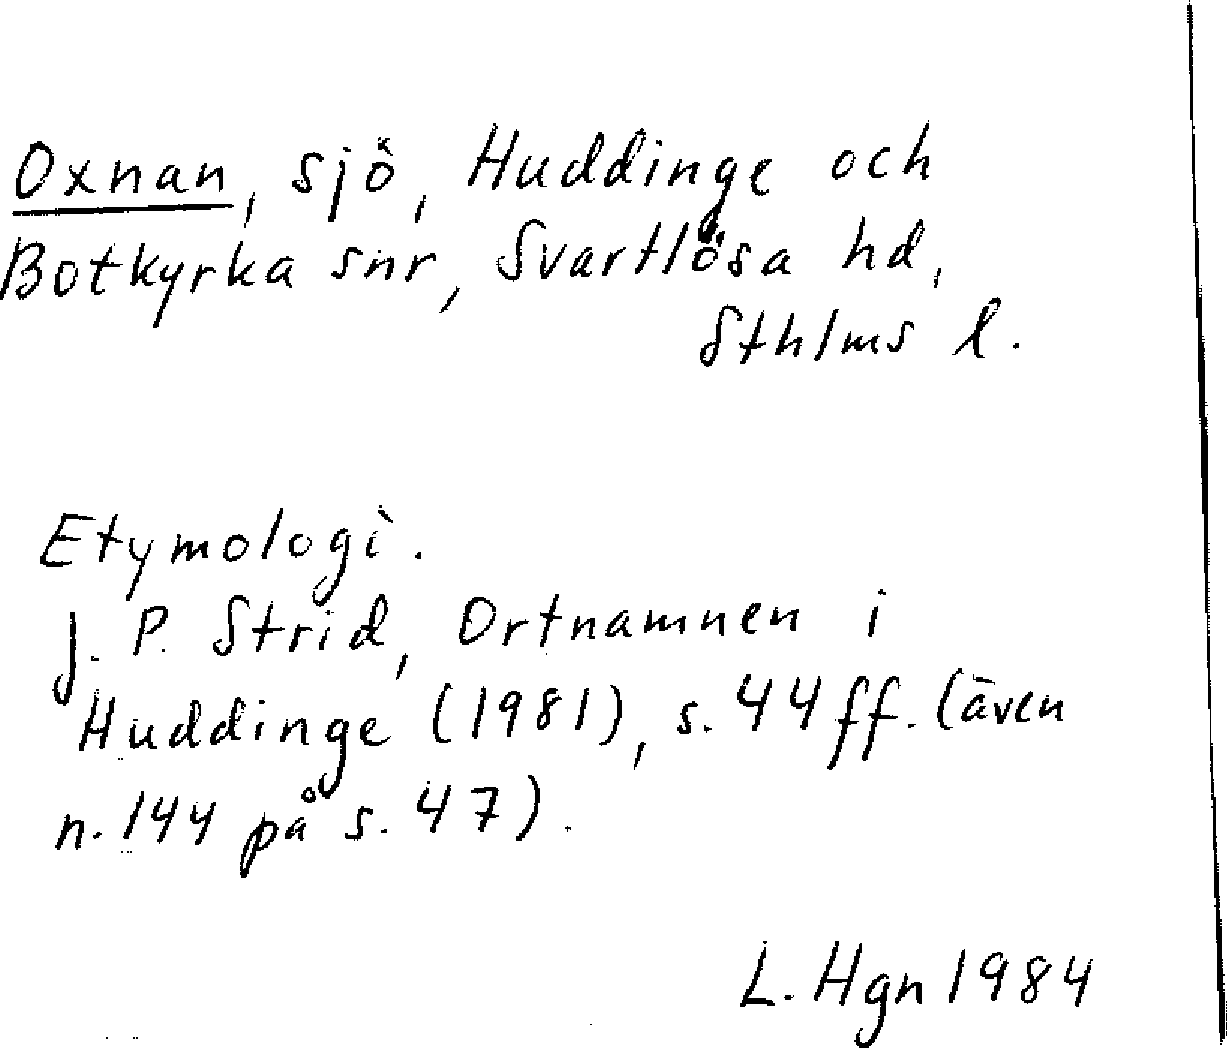 Oxnan, sjö, Huddinge och
Botkyrka snr, Svartlösa hd,
Sthlms l.
Etymologi.
J. P. Strid, Ortnamnen i
Huddinge (1981), s. 44 ff. (även
n. 144 på s. 47).
L. Hgn 1984